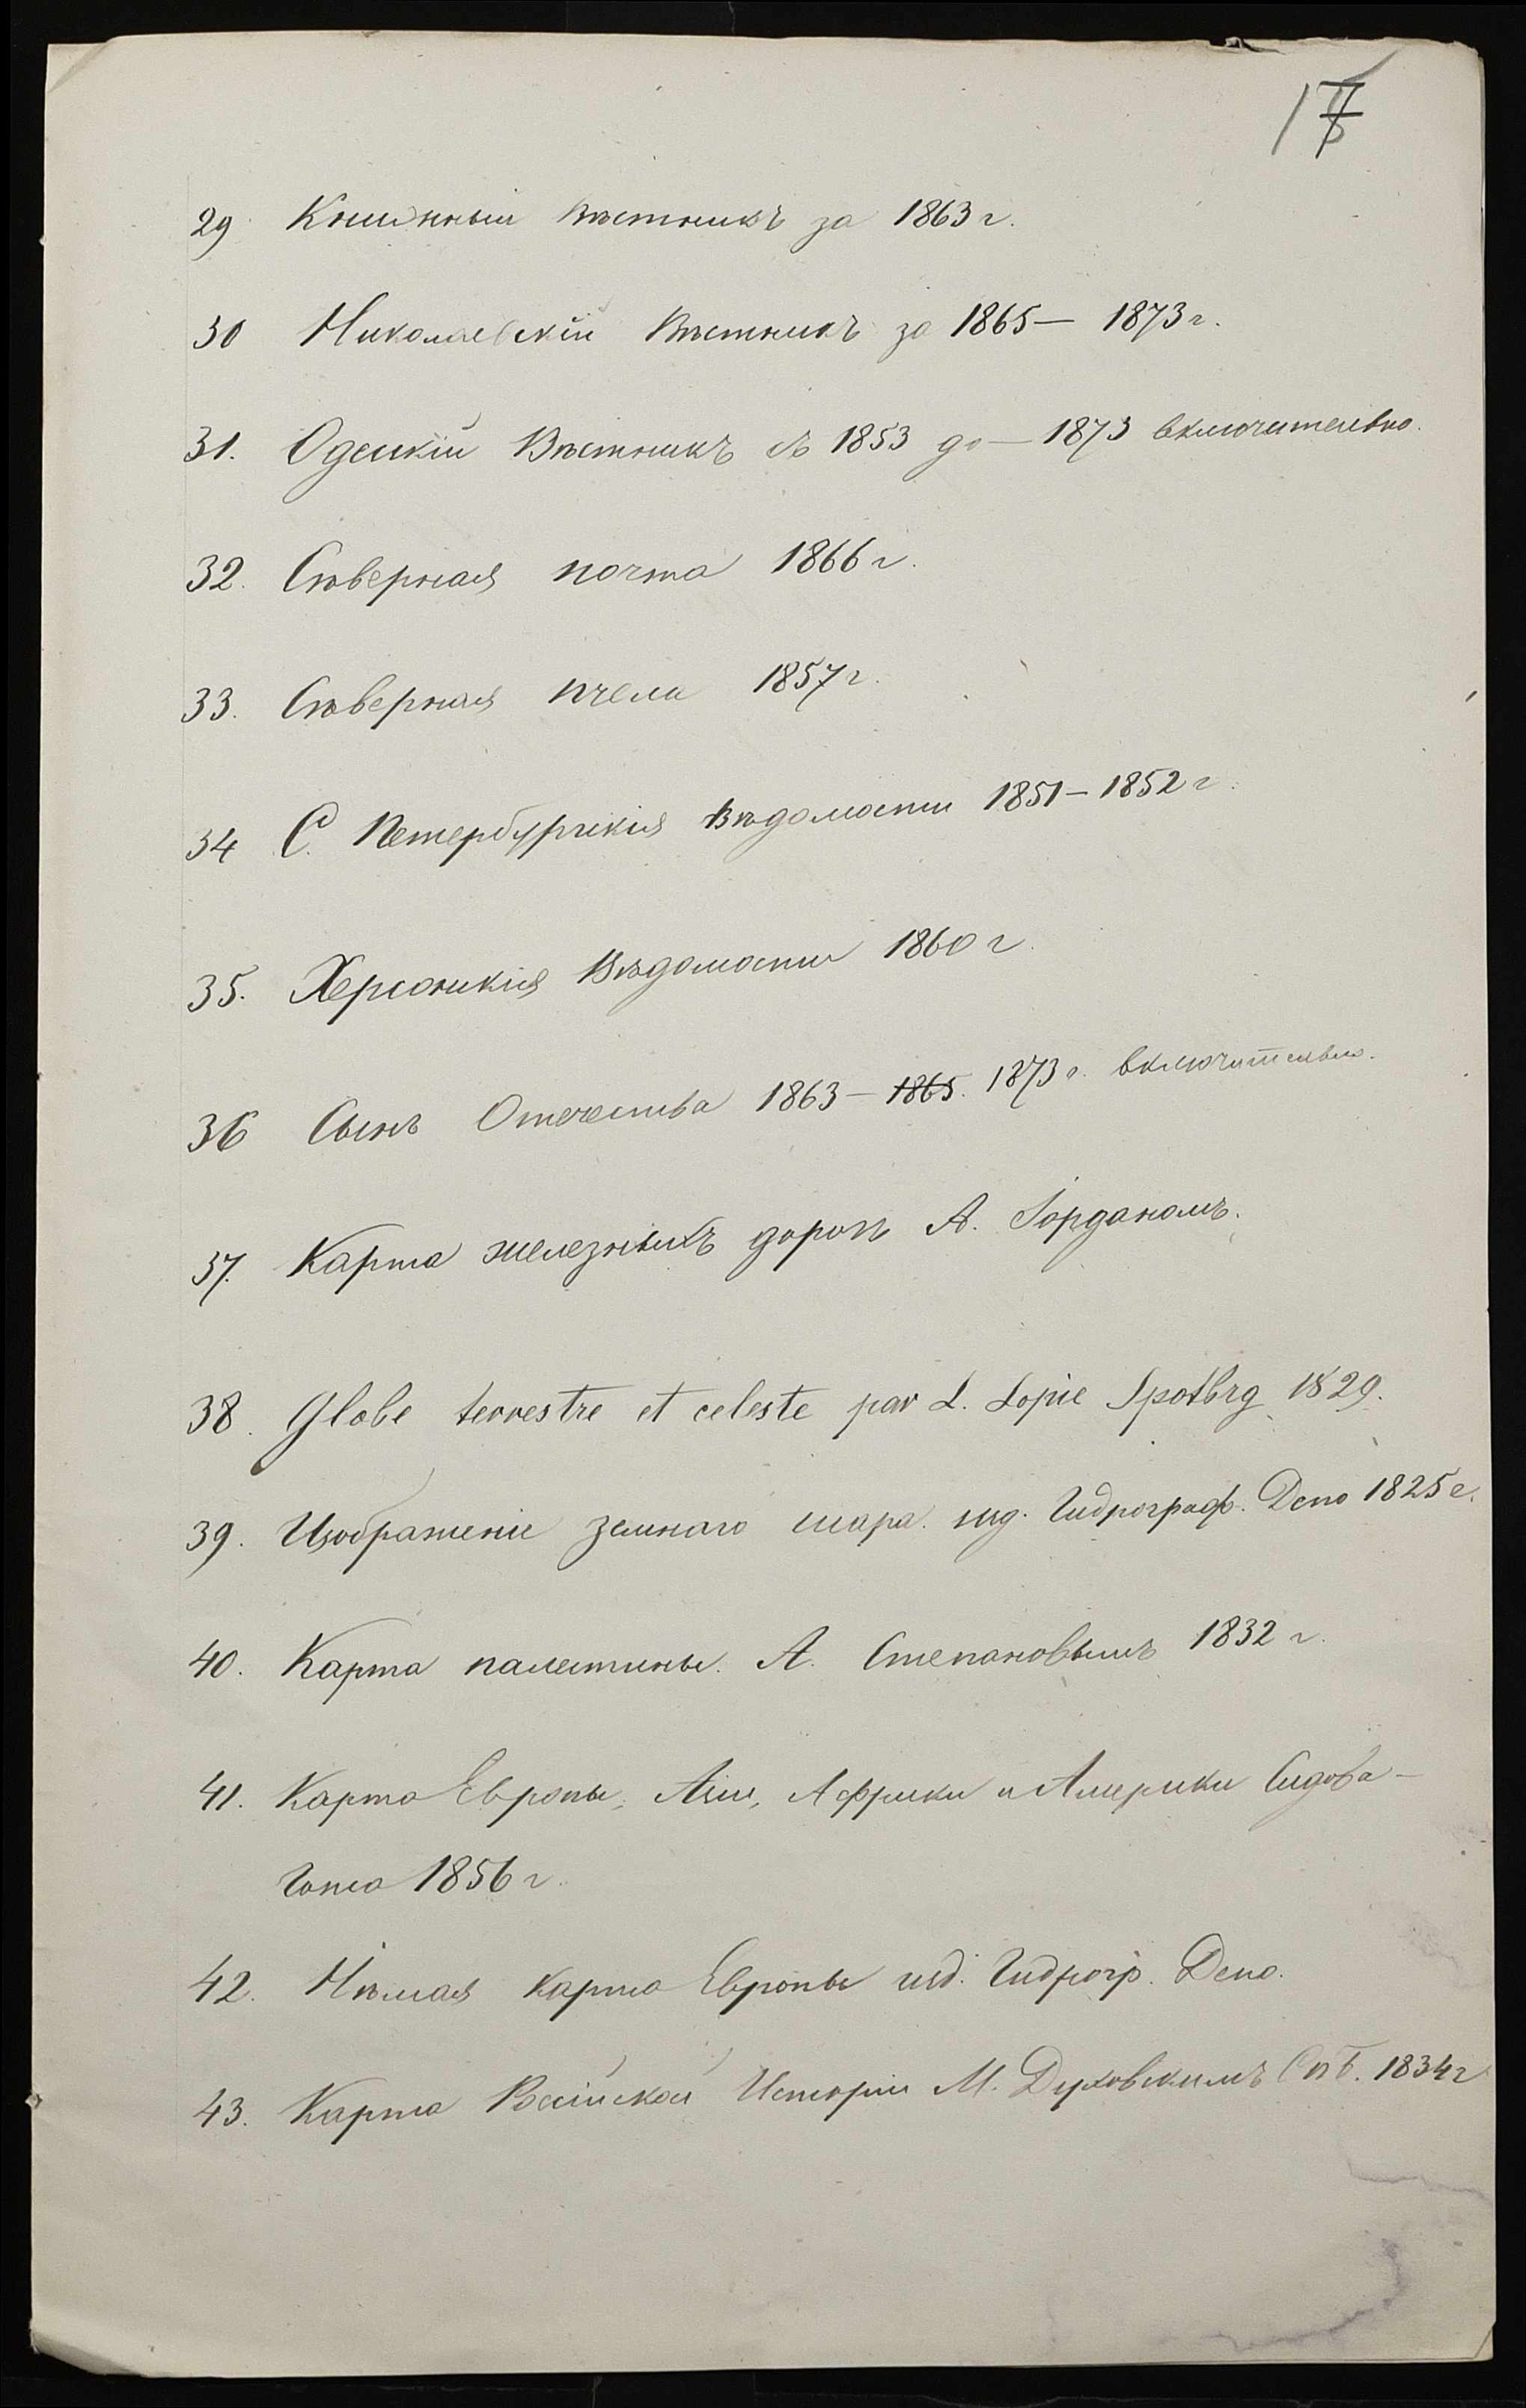 17
29 Книжный Вѣстникъ за 1863 г.
30 Николаевскій Вѣстникъ за 1865 — 1873 г.
31. Одескій Вѣстникъ съ 1853 до — 1873 включительно.
32. Сѣверная почта 1866 г.
33. Сѣверная пчела 1857 г.
34 С. Петербургскія Вѣдомости 1851 – 1852 г.
35. Херсонскія Вѣдомости 1860 г.
36 Сынъ Отечества 1863 – 1865. 1873 г. включительно.
37. Карта железныхъ дорогъ А. Іорданомъ.
38. Globe terrestre et celeste par L. Lopie Spotbrg 1829.
39. Изображеніе земнаго шара. изд. Гидрограф. Депо 1825 г.
40. Карта палестины. А. Степановымъ 1832 г.
41. Карта Европы, Азіи, Африки и Америки Сидова –
Гота 1856 г.
42. Нѣмая карта Европы изд. Гидрогр. Депо.
43. Карта Россійской Исторіи М. Духовскимъ Спб. 1834 г